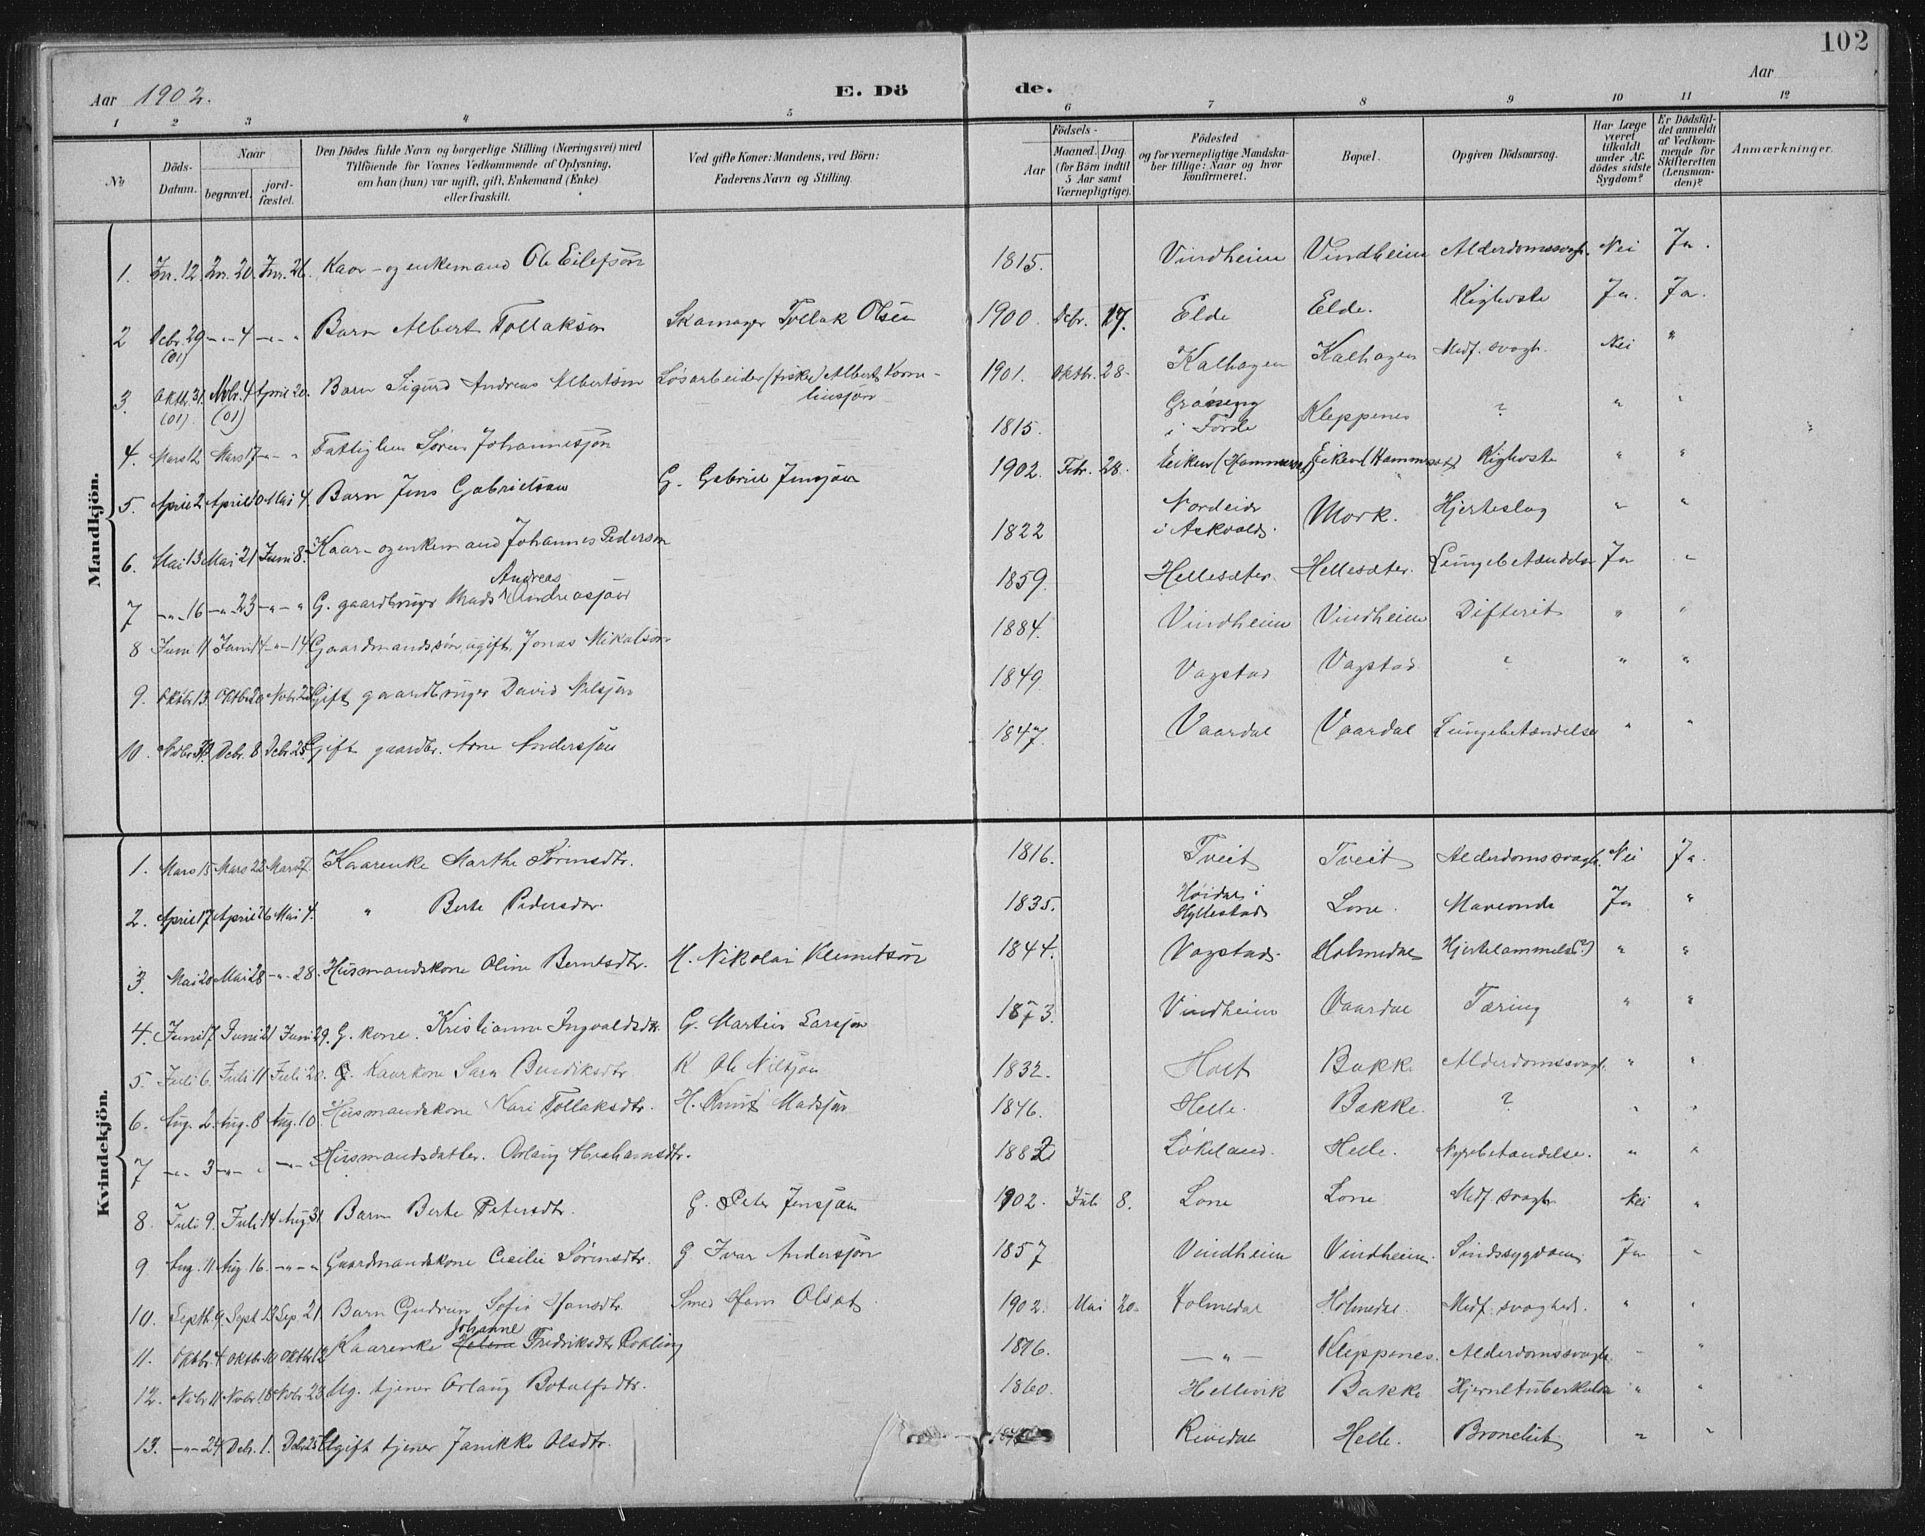 102
Aar 1902. E. Dö de. Aar
1 2 3 4 5 6 7 8 9 10 11 12
No
Döds-Datum.
Naar
begravet. jord-fæstet.
Den Dödes fulde Navn og borgerlige Stilling (Næringsvei) med
Tilföiende for Voxnes Vedkommende af Oplysning,
om han (hun) var ugift, gift, Enkemand (Enke)
eller fraskilt.
Ved gifte Koner: Mandens, ved Börn:
Faderens Navn og Stilling.
Födsels-
Aar
Maaned. Dag.
(for Börn indtil
5 Aar samt
Værnepligtige).
Födested
og for værnepligtige Mandska-
ber tillige: Naar og hvor
konfirmeret.
Bopæl.
Opgiven Dödsaarsag.
Har Læge
været
tilkaldt
under Af-
dödes sidste
Sygdom?
Er Dödsfal-
det anmeldt
af Vedkom-
mende for
Skifteretten
(Lensman-
den)?
Anmærkninger.
Mandkjön.
1. Jnr. 12. Jnr. 20. Jnr. 26. Kaar- og enkemand Ole Eilefsøn 1815. Vindheim Vindheim Alderdomssvagh. Nei Ja.
2 Debr. 29 (01) -"- 4 -"- " Barn Albert Tollaksøn Skomager Tollak Olsen 1900. Debr. 17. Elde Elde. Kighoste Ja. Ja.
3. Oktbr. 31. (01) Nvbr. 4 (01) April 20. Barn Sigurd Andreas Albertsøn Løsarbeider (fisker) Albert Korne-
liusjøn 1901. Oktbr. 28. Kalhagen Kalhagen Medf. svagh. Nei "
4. Mars 12 Mars 17 -"- " Fattiglem Søren Johannesjøn 1815. Grøneng
i Førde Kleppenes ? " "
5. April 2. April 10 Mai 4. Barn Jens Gabrielsøn G. Gabriel Jensjøn 1902. Febr. 28. Eiken (Hammerset) Eiken (Hammerset) Kighoste " "
6. Mai 13 Mai 21 Juni 8. Kaar- og enkemand Johannes Pedersøn 1822 Nordeide
i Askvold. Mork. Hjerteslag " "
7 -"- 16 -"- 23 -"- " G. gaardbruger Mads Andreas Andreasjøn 1859. Hellesæter. Hellesæter. Lungebetændelse Ja "
8 Juni 11 Juni 14 -"- 14. Gaardmandssøn ugift Jonas Mikalsøn 1884. Vindheim Vindheim Difterit " "
9. Oktbr. 13. Oktbr. 20 Nvbr. 23. Gift gaardbruger David Nilsjøn 1849. Vagstad Vagstad ? " "
10. Nvbr. 30. Debr. 8 Debr. 25. Gift gaardbr. Arne Andersjøn 1847. Vaardal Vaardal Lungebetændelse " "
Kvindekjön.
1. Mars 15 Mars 22 Mars 27. Kaarenke Marthe Sørensdtr. 1816. Tveit Tveit Alderdomssvagh. Nei Ja.
2. April 17. April 26 Mai 4. " Berte Pedersdtr. 1835. Høidal i
Hyllestad Lone. Mavevonde Ja "
3. Mai 20 Mai 28 -"- 28. Husmandskone Oline Berntsdtr. H. Nikolai Klemetsøn 1844. Vagstad. Holmedal Hjertelammelse(?) " "
4. Juni 17 Juni 21 Juni 29. G. kone. Kristianne Ingvaldsdtr. G. Martin Larsjøn 1873. Vindheim Vaardal Tæring " "
5. Juli 6. Juli 11 Juli 20. G. Kaarkone Sara Bendiksdtr K Ole Nilsjøn 1832. Holt Bakke Alderdomssvagh. " "
6. Aug. 2. Aug. 8 Aug. 10. Husmandskone Kari Tollaksdtr. H. Knut Madsjøn 1846. Helle. Bakke. ? " "
7 -"- 3 -"- " -"- Husmandsdatter. Orlaug Abrahamsdtr. 1882 Løkeland. Helle. Nyrebetændelse. " "
8. Juli 9. Juli 14 Aug. 31. Barn Berte Petersdtr. G. Peter Jensjøn 1902. Juli 8. Lone Lone Medf. svagh. Nei "
9 Aug. 11 Aug. 16. -"- " Gaardmandskone Cecilie Sørensdtr. G Ivar Andersjøn 1857 Vindheim Vindheim. Sindssygdom. Ja "
10. Septb. 9. Sept. 13 Sep. 21. Barn Gudrun Sofie Hansdtr. Smed Hans Olsøn 1902. Mai 20. Holmedal Holmedal. Medf. svaghed. " "
11. Oktbr. 4. Oktbr. 10 Oktbr. 12 Kaarenke Helene Johanne Fredriksdtr. 1816. -"- Kleppenes. Alderdomssvagh. " "
12. Nvbr. 11 Nvbr. 18 Nvbr. 23. Ug. tjener Orlaug Botolfsdtr. 1860. Hellevik Bakke Hjernetuberkulose " "
13. -"- 24. Debr. 1. Debr. 25 Ugift tjener Janikke Olsdtr. Rivedal Helle. Bronchit " "